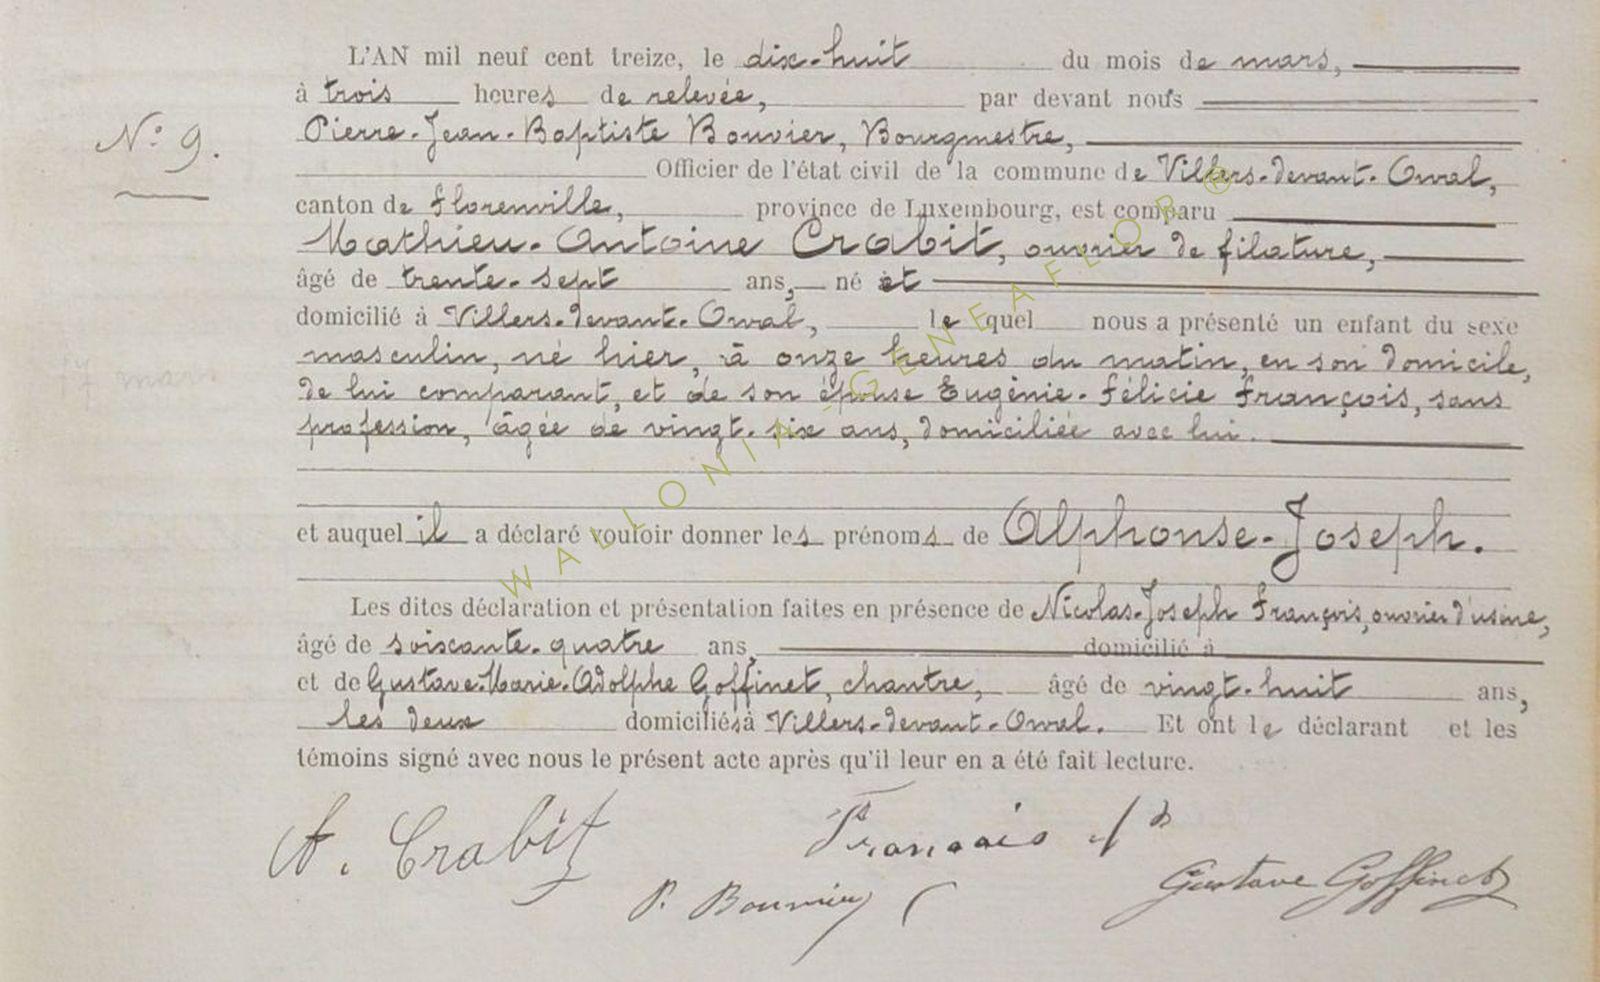 L'AN mil neuf cent treize, le dix-huit du mois de mars,
à trois heures de relevée, par devant nous
N° 9.
Pierre-Jean-Baptiste Bouvier, Bourgmestre,
Officier de l'état civil de la commune de Villers-devant-Orval,
canton de Florenville, province de Luxembourg, est comparu
Mathieu-Antoine Crabit, ouvrier de filature,
âgé de trente-sept ans, né et
domicilié à Villers-devant-Orval, lequel nous a présenté un enfant du sexe
17 mars
masculin, né hier, à onze heures du matin, en son domicile,
de lui comparant, et de son épouse Eugénie-Félicie François, sans
profession, âgée de vingt-six ans, domiciliée avec lui.
et auquel il a déclaré vouloir donner les prénoms de Alphonse-Joseph.
Les dites déclaration et présentation faites en présence de Nicolas-Joseph François, ouvrier d'usine,
âgé de soixante-quatre ans, domicilié à
et de Gustave-Marie-Adolphe Goffinet, chantre, âgé de vingt-huit ans,
les deux domiciliés à Villers-devant-Orval. Et ont le déclarant et les
témoins signé avec nous le présent acte après qu'il leur en a été fait lecture.
A. Crabit
François
P. Bouvier
Gustave Goffinet
WALLONIA-GENEAFLOR®